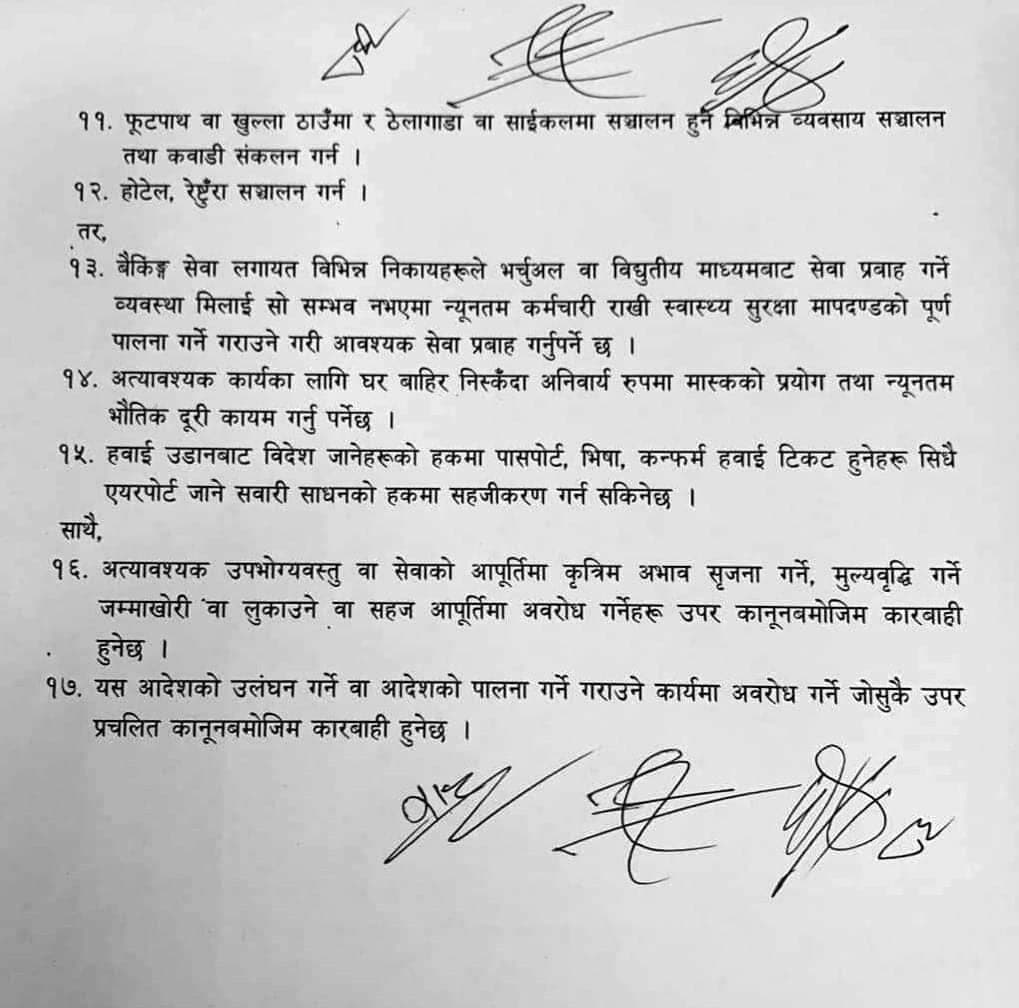 ११. फूटपाथ वा खुल्ला ठाउँमा र ठेलागाडा वा साईकलमा सञ्चालन हुने विभिन्न व्यवसाय सञ्चालन
तथा कवाडी संकलन गर्न ।
१२. होटेल, रेष्टुँरा सञ्चालन गर्न ।
तर,
१३. बैकिङ्ग सेवा लगायत विभिन्न निकायहरूले भर्चुअल वा विद्युतीय माध्यमबाट सेवा प्रवाह गर्ने
व्यवस्था मिलाई सो सम्भव नभएमा न्यूनतम कर्मचारी राखी स्वास्थ्य सुरक्षा मापदण्डको पूर्ण
पालना गर्ने गराउने गरी आवश्यक सेवा प्रबाह गर्नुपर्ने छ ।
१४. अत्यावश्यक कार्यका लागि घर बाहिर निस्कँदा अनिवार्य रुपमा मास्कको प्रयोग तथा न्यूनतम
भौतिक दूरी कायम गर्नु पर्नेछ ।
१५. हवाई उडानबाट विदेश जानेहरूको हकमा पासपोर्ट, भिषा, कन्फर्म हवाई टिकट हुनेहरू सिधै
एयरपोर्ट जाने सवारी साधनको हकमा सहजीकरण गर्न सकिनेछ ।
साथै,
१६. अत्यावश्यक उपभोग्यवस्तु वा सेवाको आपूर्तिमा कृत्रिम अभाव सृजना गर्ने, मुल्यवृद्धि गर्ने
जम्माखोरी वा लुकाउने वा सहज आपूर्तिमा अवरोध गर्नेहरू उपर कानूनबमोजिम कारबाही
हुनेछ ।
१७. यस आदेशको उलंघन गर्ने वा आदेशको पालना गर्ने गराउने कार्यमा अवरोध गर्ने जोसुकै उपर
प्रचलित कानूनबमोजिम कारबाही हुनेछ ।